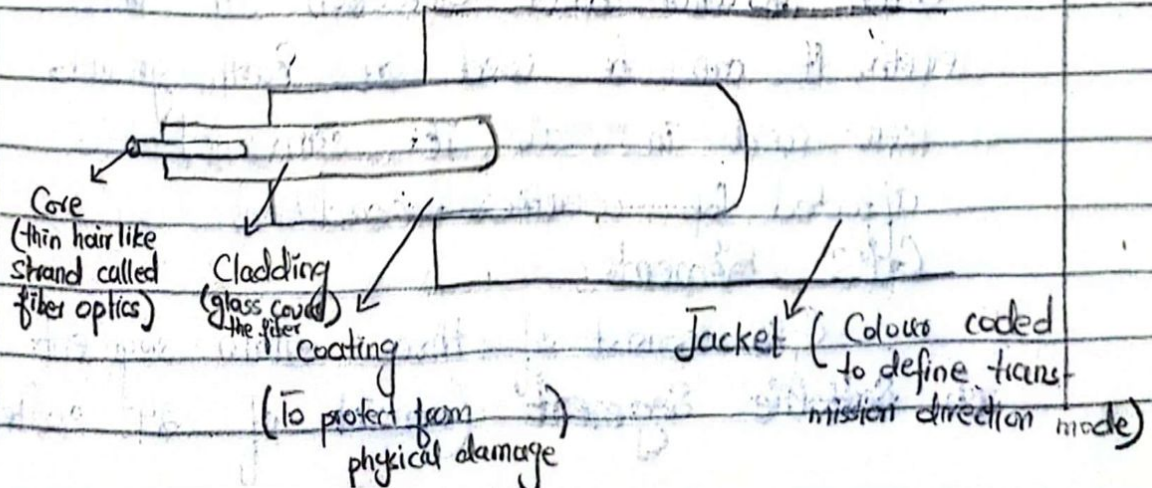 Core
(thin hair like
strand called
fiber optics)
Cladding
(glass cover)
the fiber
Coating
(To protect from
physical damage)
Jacket (Colour coded
to define trans-
mission direction mode)